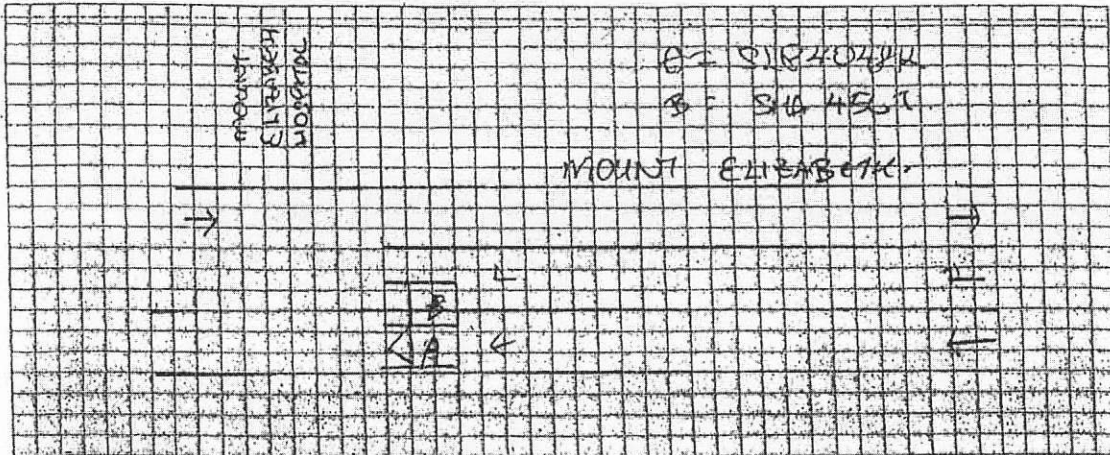 MOUNT
ELIZABETH
HOSPITAL
B = SHA 4567
MOUNT ELIZABETH.
B
A